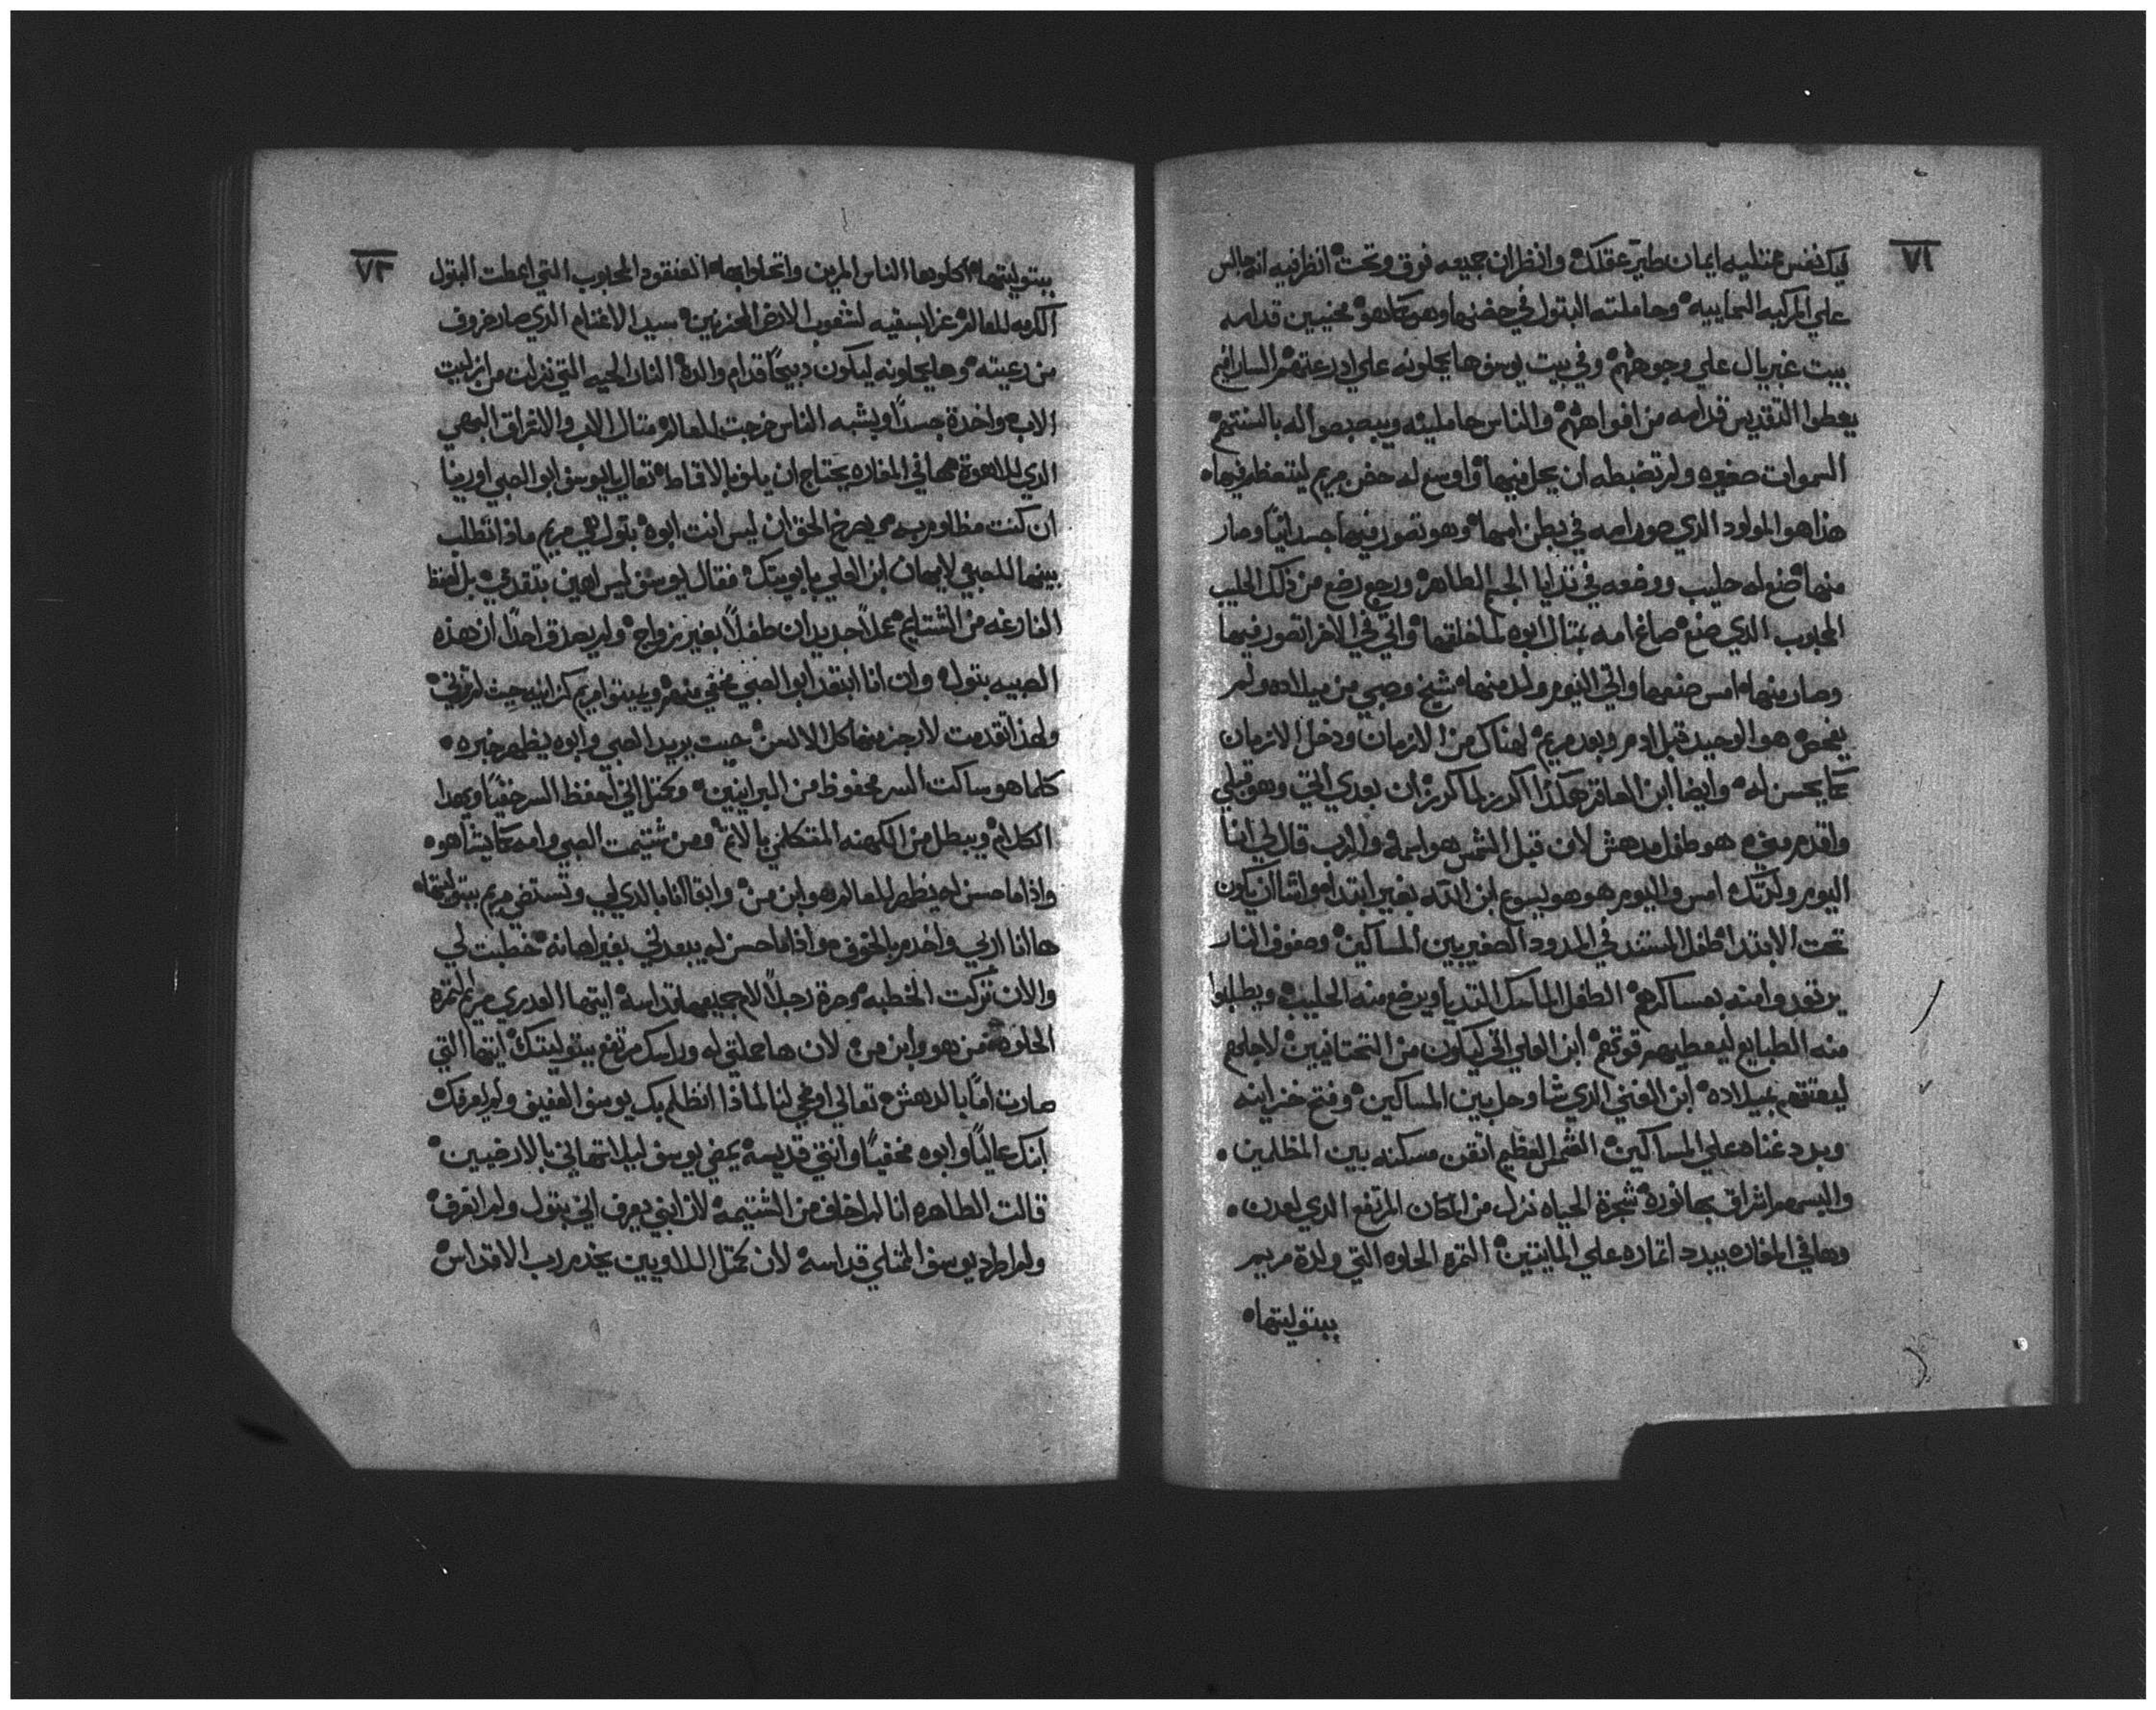 ٧٢
ليك نفس ممتليه ايمان طير عقلك وانظر ان جميعه فوق وتحت انظر فيه انه جالس
علي المركبه السماييه وحاملته البتول في حضنها وهو كما هو مخبيين قدامه
بيت غبريال علي وجوههم وفي بيت يوسف ها يحملونه علي ادرعتهم السارافيم
يعطوا التقديس قدامه من افواههم والناس حاملينه ويبصبصوا له بالسنتهم
السموات صغيره ولم تضبطه ان يحل فيها واوسع له حضن مريم ليتعظم فيها
هذا هو المولود الذي صور امه في بطن امها وهو تصور فيها جسدانيا وصار
منها صنع له حليب ووضعه في تدايا الجسم الطاهره ورجع رضع من ذلك الحليب
المحبوب الذي صنع صاغ امه بمتال ابوه لما خلقها واتي في الاخر اتصور فيها
وصار منها امس صنعها واتي اليوم ولد منها شيخ وصبي من ميلاده ولم
يفحص هو الوحيد قبل ادم وبعد مريم لهناك من الازمان ودخل الازمان
كما يحسن له وايضا ابن العاقر هكذا اكرز لما كرز ان بعدي اتي وهو قبلي
واقدم مني هو طفل مدهش لان قبل الشمس هو اسمه والرب قال لي انا
اليوم ولدتك امس واليوم هو هو ليسوع ابن الله بغير ابتدا ولشا ان يكون
تحت الابتدا طفل المستند في المدود الصغير بين المساكين وصفوف النار
يرتعدوا منه بعساكرهم الطفل الماسك التديا ويرضع منه الحليب ويطلبوا
منه الطبايع ليعطيهم قوتهم ابن العلي اتي ليكون من التحتانيين لاجلهم
ليعتقهم بميلاده ابن الغني الذي شا وحل بين المساكين وفتح خزاينه
وبدد غناه علي المساكين الشمس العظيم اتقن مسكنه بين المظلمين
والبسهم اشراق بها نوره شجرة الحياه نزل من المكان المرتفع الذي لعدن
وها في المغاره يبدد اتماره علي المايتين التمره الحلوه التي ولدة مريم
ببتوليتها
٧٣
ببتوليتها اكلوها الناس المرين واتحلوا بها العنقود المحبوب التي اعطت البتول
الكرمه للعالم عزا بسقيه لشعوب الارض المحزنين سيد الاغنام الذي صار خروف
من رعيته وها يحملونه ليكون دبيحا قدام والده النار الحيه التي نزلت من ازليت
الاب واخدة جسدا وبشبه الناس خرجت للعالم متال الاب والاشراق البهي
الذي للاهوة مهما في المغاره يحتاج ان يلف بالاقماط تعال يا يوسف ابو الصبي اورينا
ان كنت مظلوم به ويصرخ الحق ان ليس انت ابوه بتول هي مريم ماذا تطلب
بينهما للصبي لايمان ابن العلي بابويتك فقال يوسف ليس اهين بتقدمي بل احفظ
الفارغه من الشتايم عملا جديدا ان طفلا بغير زواج ولم يصدق احدا ان هذه
الصبيه بتول وان انا ابتعد ابو الصبي مخفي منهم ويهينوا مريم كزانيه حيث لم تزني
ولهذا تقدمت لازجز منها كل الالسن حيت يريد الصبي وابوه يظهر خبره
كلما هو ساكت السر محفوظ من البرانيين ومحتمل اني احفظ السر خفيا وبهذا
الكلام ويبطل من الكهنه المتكلمي بالاتم ومن شتيمت الصبي وامه كما يشا هو
واذا ما حسن له يظهر للعالم هو ابن من وابقا انا بالذي لي وتستضي مريم ببتوليتها
ها انا اربي واخدم بالخوف واذا ما حسن له يبعدني بغير اهانه خطبت لي
والان تركت الخطبه وصرة رجلا لام جميعها قداسه ايتها العدري مريم التمره
الحلوه من هو وابن من لان ها حملتي له وراسك مرتفع ببتوليتك ايتها التي
صارت اما بالدهش تعالي اوضحي لنا لماذا انظلم بك يوسف العفيف ولم يعرفك
ابنك عاليا وابوه مخفيا وانتي قديسة يمضي يوسف ليلا اتهاني بالارضيين
قالت الطاهره انا لم اخاف من الشتيمه لان ابني يعرف اني بتول ولم اتعرف
ولم اطرد يوسف الممتلي قداسه لان محتمل اللاويين يخدم رب الاقداس